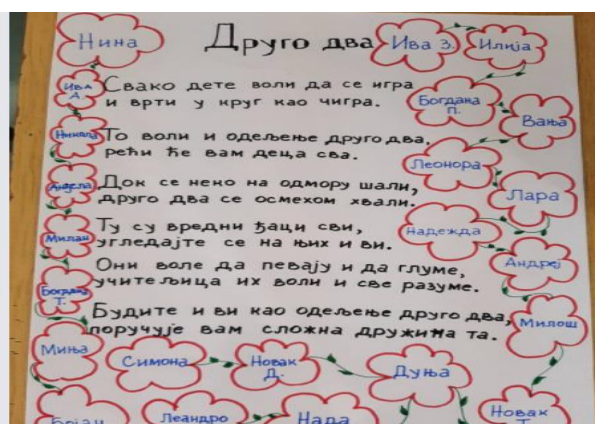 Друго два
Нина
Ива З.
Илија
Ива А.
Свако дете воли да се игра
и врти у круг као чигра.
Богдана П.
Вања
Никола
То воли и одељење друго два,
рећи ће вам деца сва.
Леонора
Анђела
Док се неко на одмору шали,
друго два се осмехом хвали.
Лара
Милан
Ту су вредни ђаци сви,
угледајте се на њих и ви.
Надежда
Андреј
Богдан Т.
Они воле да певају и да глуме,
учитељица их воли и све разуме.
Будите и ви као одељење друго два,
поручује вам сложна дружина та.
Милош
Миња
Симона
Новак Д.
Дуња
Бојан
Леандро
Нада
Новак Т.